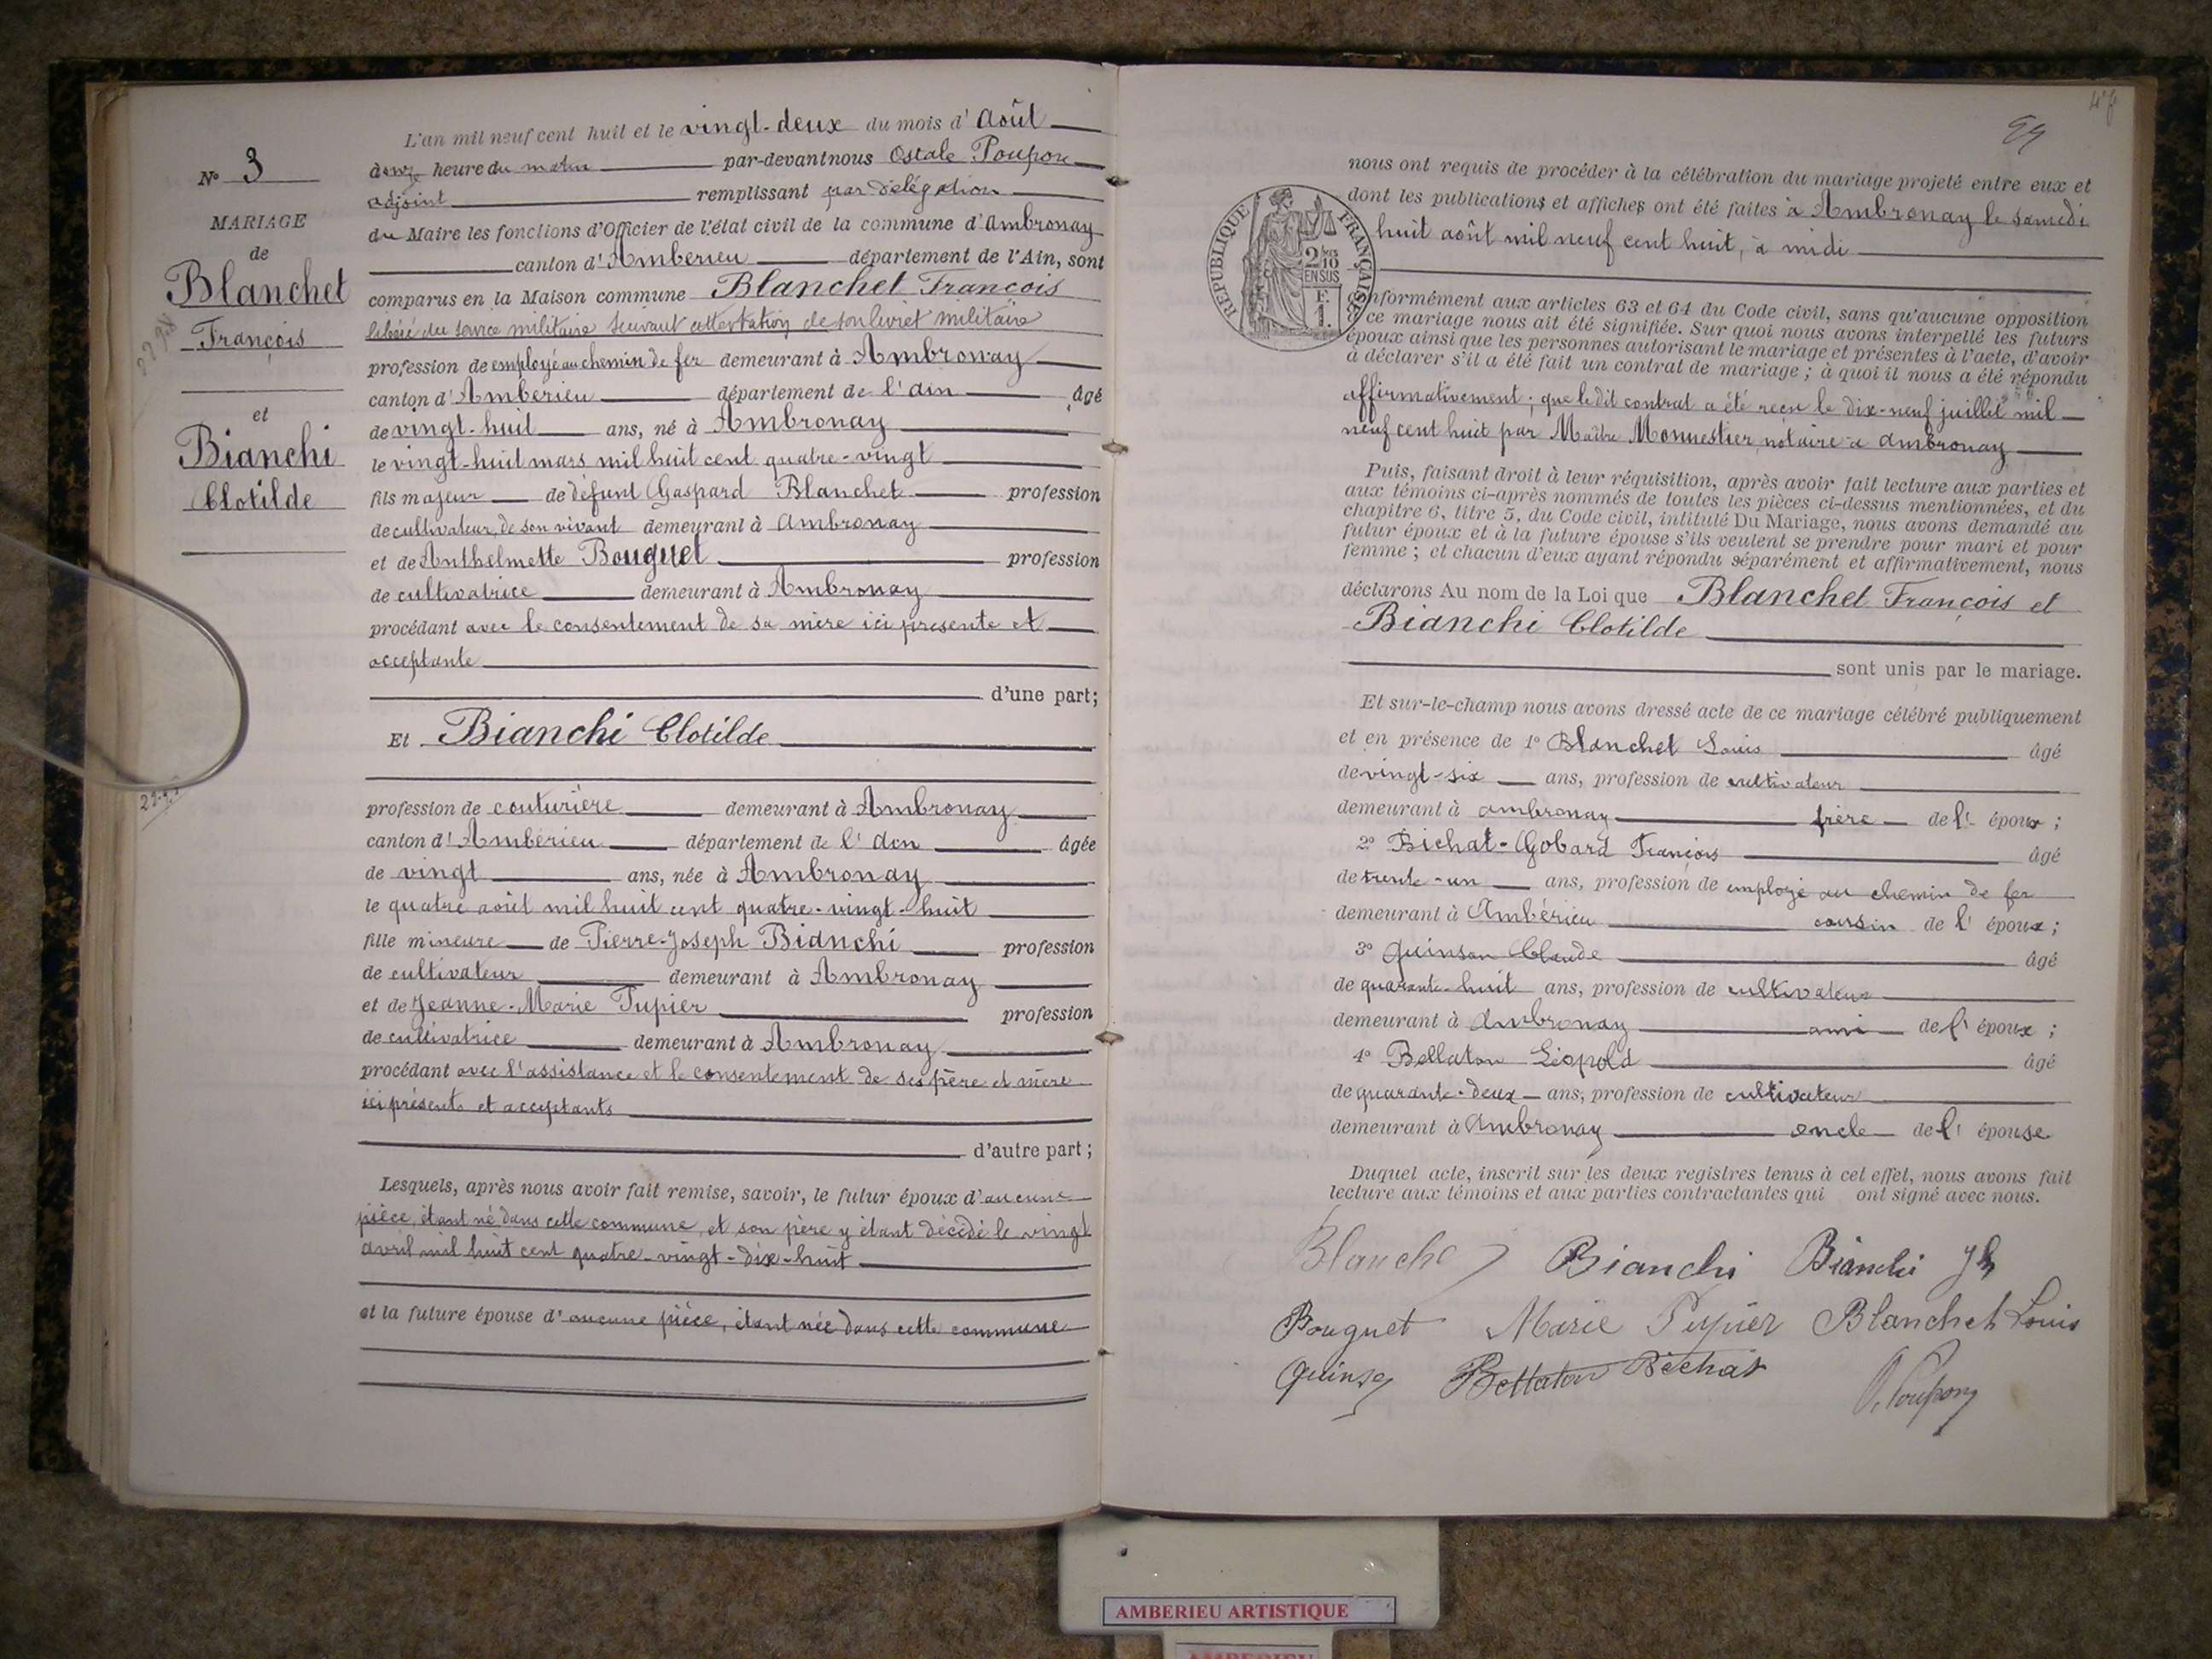 L'an mil neuf cent huit et le vingt-deux du mois d'Août
heure du matin par-devant nous Oscale Poupon
adjoint remplissant par délégation
du Maire les fonctions d'Officier de l'état civil de la commune d'Ambronay
canton d'Ambérieu département de l'Ain, sont
comparus en la Maison commune Blanchet François
libéré du service militaire suivant attestation de son livret militaire
profession de employé au chemin de fer demeurant à Ambronay
canton d'Ambérieu département de l'ain âgé
de vingt-huit ans, né à Ambronay
le vingt-huit mars mil huit cent quatre-vingt
fils majeur de défunt Gaspard Blanchet profession
de cultivateur, de son vivant demeurant à Ambronay
et de Anthelmette Bouguet profession
de cultivatrice demeurant à Ambronay
procédant avec le consentement de sa mère ici présente et
acceptante
d'une part;
Et Bianchi Clotilde
profession de couturière demeurant à Ambronay
canton d'Ambérieu département de l'ain âgée
de vingt ans, née à Ambronay
le quatre août mil huit cent quatre-vingt-huit
fille mineure de Pierre-Joseph Bianchi profession
de cultivateur demeurant à Ambronay
et de Jeanne-Marie Pupier profession
de cultivatrice demeurant à Ambronay
procédant avec l'assistance et le consentement de ses père et mère
ici présents et acceptants
d'autre part;
Lesquels, après nous avoir fait remise, savoir, le futur époux d'aucune
pièce, étant né dans cette commune, et son père y étant décédé le vingt
avril mil huit cent quatre-vingt-dix-huit
et la future épouse d'aucune pièce, étant née dans cette commune
N° 3
MARIAGE
de
Blanchet
François
et
Bianchi
Clotilde
nous ont requis de procéder à la célébration du mariage projeté entre eux et
dont les publications et affiches ont été faites à Ambronay le samedi
huit août mil neuf cent huit, à midi
RÉPUBLIQUE FRANÇAISE
2/10
EN SUS
F.
1.
conformément aux articles 63 et 64 du Code civil, sans qu'aucune opposition
ce mariage nous ait été signifiée. Sur quoi nous avons interpellé les futurs
époux ainsi que les personnes autorisant le mariage et présentes à l'acte, d'avoir
à déclarer s'il a été fait un contrat de mariage; à quoi il nous a été répondu
affirmativement; que le dit contrat a été reçu le dix-neuf juillet mil
neuf cent huit par Maître Monnestier, notaire à Ambronay
Puis, faisant droit à leur réquisition, après avoir fait lecture aux parties et
aux témoins ci-après nommés de toutes les pièces ci-dessus mentionnées, et du
chapitre 6, titre 5, du Code civil, intitulé Du Mariage, nous avons demandé au
futur époux et à la future épouse s'ils veulent se prendre pour mari et pour
femme; et chacun d'eux ayant répondu séparément et affirmativement, nous
déclarons Au nom de la Loi que Blanchet François et
Bianchi Clotilde
sont unis par le mariage.
Et sur-le-champ nous avons dressé acte de ce mariage célébré publiquement
et en présence de 1° Blanchet Louis âgé
de vingt-six ans, profession de cultivateur
demeurant à Ambronay frère de l'époux;
2° Bichat-Gobard François âgé
de trente-un ans, profession de employé au chemin de fer
demeurant à Ambérieu cousin de l'époux;
3° Quinson Claude âgé
de quarante-huit ans, profession de cultivateur
demeurant à Ambronay ami de l'époux;
4° Bellaton Léopold âgé
de quarante-deux ans, profession de cultivateur
demeurant à Ambronay oncle de l'épouse
Duquel acte, inscrit sur les deux registres tenus à cet effet, nous avons fait
lecture aux témoins et aux parties contractantes qui ont signé avec nous.
Blanchet Bianchi Bianchi Jh
Bouguet Marie Pupier Blanchet Louis
Quinson Bellaton Bichat
O. Poupon
AMBERIEU ARTISTIQUE
AMBERIEU